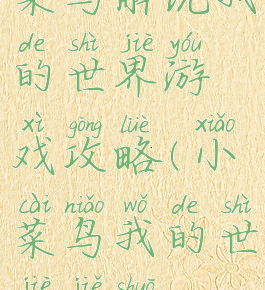 菜鸟解说我
de shì jiè yóu
的世界游
xì gōng lüè xiǎo
戏攻略(小
cài niǎo wǒ de shì
菜鸟我的世
jiè jiě shuō